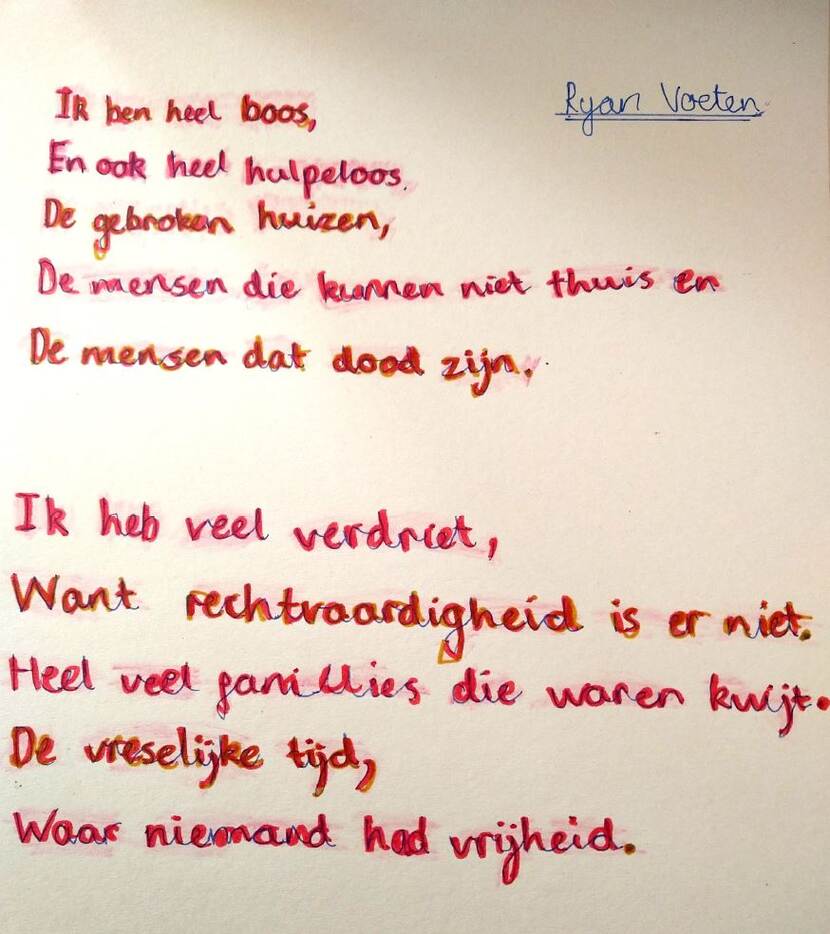 Ryan Voeten
Ik ben heel boos,
En ook heel hulpeloos.
De gebroken huizen,
De mensen die kunnen niet thuis en
De mensen dat dood zijn.
Ik heb veel verdriet,
Want rechtvaardigheid is er niet.
Heel veel famillies die waren kwijt.
De vreselijke tijd,
Waar niemand had vrijheid.